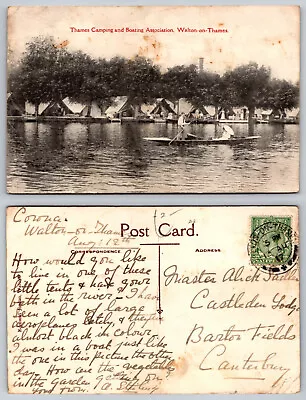 Thames Camping and Boating Association, Walton-on-Thames.
Corona
Walton-on-Thames
Aug: 18th
Post Card.
CORRESPONDENCE
ADDRESS
How would you like
to live in one of these
little tents & have your
bath in the river - I have
seen a lot of large
aeroplanes lately &
almost black in colour.
I was in a boat just like
the one in this picture the other
day. How are the vegetables
in the garden getting on
Your from
Master Alick
Castleden Lodge
Barton Fields
Canterbury